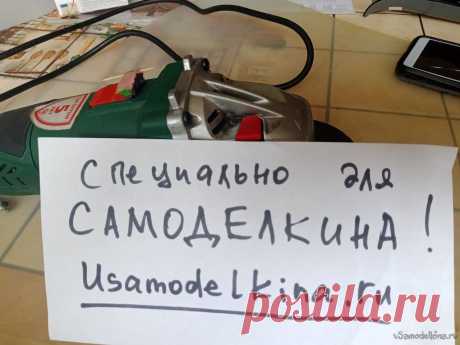 Специально для
САМОДЕЛКИНА!
Usamodelkina.ru
postila.ru
uSamodelkina.ru